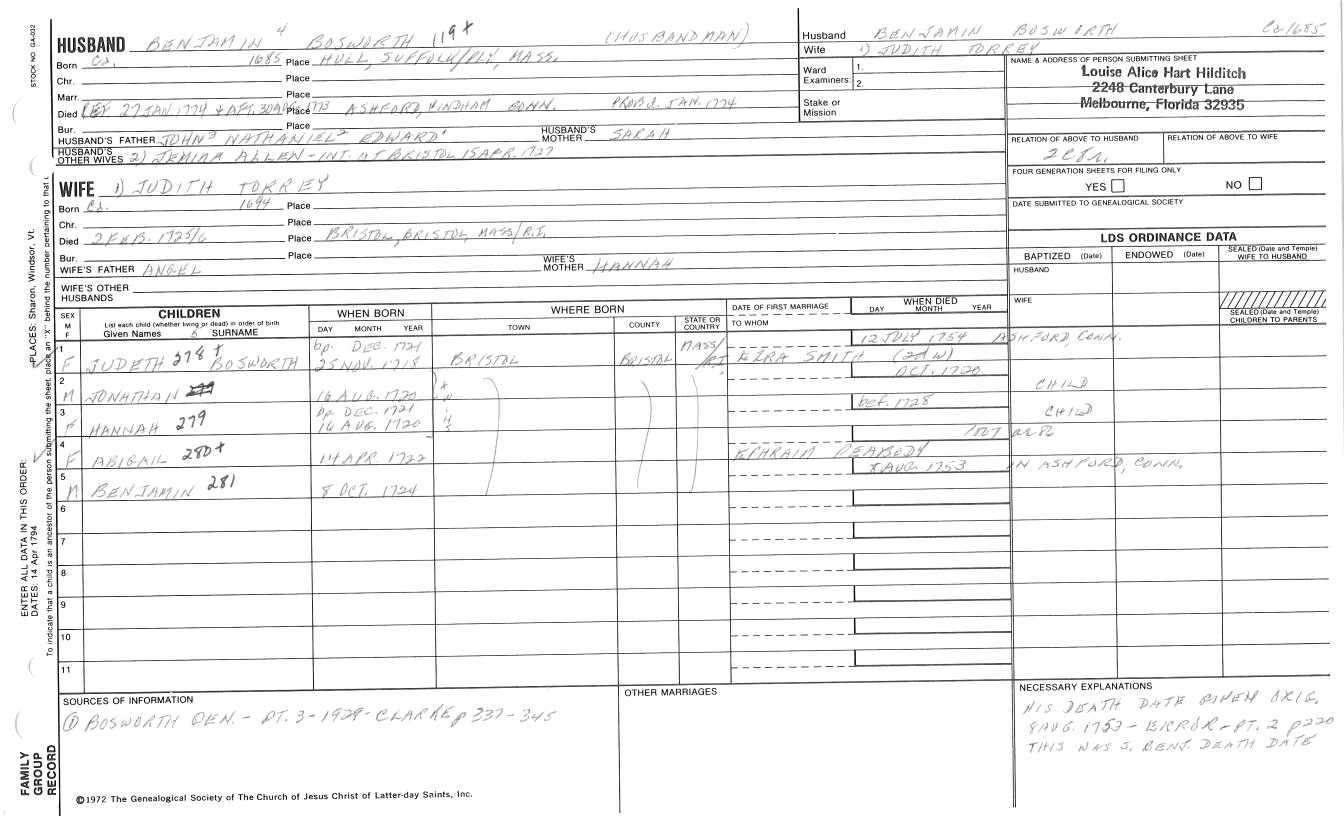 STOCK NO. GA-032
HUSBAND BENJAMIN 4 BOSWORTH 119 + (HUSBANDMAN)
Born Ca. 1685 Place HULL, SUFFOLK/PLY, MASS.
Chr. Place
Marr. Place
Died BEF 27 JAN. 1774 & AFT. 30 AUG. 1773 Place ASHFORD, WINDHAM CONN. PROB'd. JAN. 1774
Bur. Place
HUSBAND'S FATHER JOHN3 NATHANIEL2 EDWARD1 HUSBAND'S MOTHER SARAH
HUSBAND'S OTHER WIVES 2) JEMIAM ALLEN - INT. AT BRISTOL 15 APR. 1727
Husband BENJAMIN BOSWORTH Ca 1685
Wife 1) JUDITH TORREY
Ward Examiners: 1. 2.
Stake or Mission
NAME & ADDRESS OF PERSON SUBMITTING SHEET
Louise Alice Hart Hilditch
2248 Canterbury Lane
Melbourne, Florida 32935
RELATION OF ABOVE TO HUSBAND RELATION OF ABOVE TO WIFE
FOUR GENERATION SHEETS FOR FILING ONLY
YES NO
DATE SUBMITTED TO GENEALOGICAL SOCIETY
WIFE 1) JUDITH TORREY
Born Ca. 1694 Place
Chr. Place
Died 2 FEB. 1725/6 Place BRISTOL, BRISTOL, MASS/R.I.
Bur. Place
WIFE'S FATHER ANGEL WIFE'S MOTHER HANNAH
WIFE'S OTHER HUSBANDS
LDS ORDINANCE DATA
BAPTIZED (Date) ENDOWED (Date) SEALED (Date and Temple) WIFE TO HUSBAND
HUSBAND
WIFE
SEALED (Date and Temple) CHILDREN TO PARENTS
SEX M F
CHILDREN
List each child (whether living or dead) in order of birth
Given Names SURNAME
WHEN BORN
DAY MONTH YEAR
WHERE BORN
TOWN COUNTY STATE OR COUNTRY
DATE OF FIRST MARRIAGE
TO WHOM
WHEN DIED
DAY MONTH YEAR
1 bp. DEC. 1721 MASS/ 12 JULY 1754 ASHFORD, CONN.
F JUDETH 278 + BOSWORTH 25 NOV. 1718 BRISTOL BRISTOL R.I. EZRA SMITH (2nd W)
2 OCT. 1720 CHILD
M JONATHAN 279 16 AUG. 1720
3 bp DEC. 1721 bef. 1728 CHILD
F HANNAH 279 16 AUG. 1720
4
F ABIGAIL 280 + 14 APR. 1722 EPHRAIM PEABODY
5 8 AUG. 1753 IN ASHFORD, CONN.
M BENJAMIN 281 8 OCT. 1724
6
7
8
9
10
11
PLACES: Sharon, Windsor, Vt.
ENTER ALL DATA IN THIS ORDER:
DATES: 14 Apr 1794
To indicate that a child is an ancestor of the person submitting the sheet, place an "X" behind the number pertaining to that
SOURCES OF INFORMATION
① BOSWORTH GEN. - PT. 3 - 1929 - CLARKE p 337-345
OTHER MARRIAGES
NECESSARY EXPLANATIONS
HIS DEATH DATE GIVEN ORIG.
8 AUG. 1753 - ERROR - PT. 2 p220
THIS WAS S. BENJ. DEATH DATE
FAMILY GROUP RECORD
©1972 The Genealogical Society of The Church of Jesus Christ of Latter-day Saints, Inc.